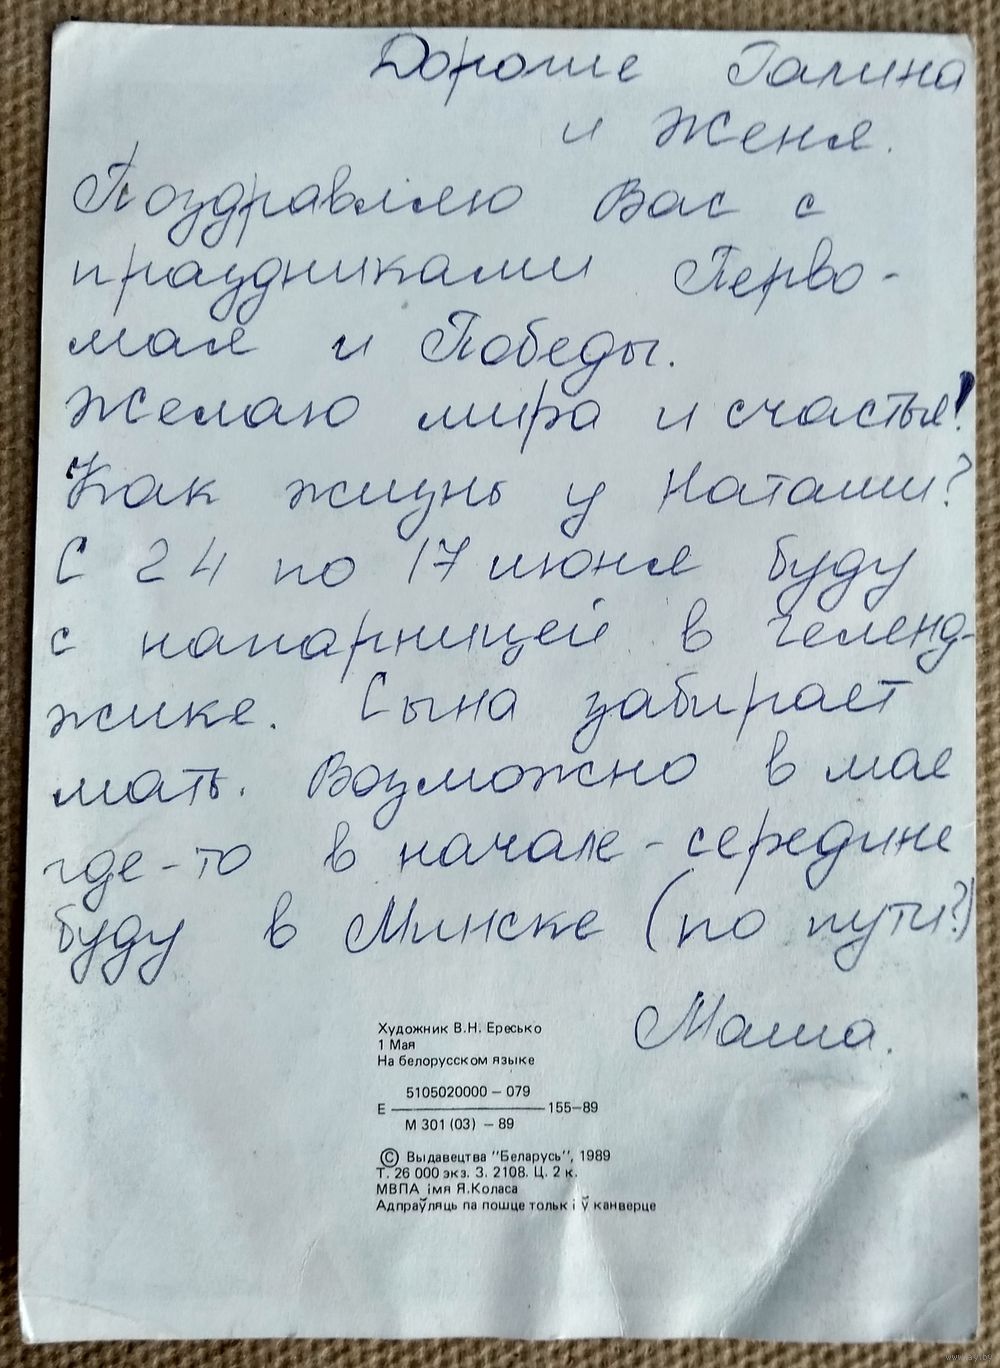 Дорогие Галина
и Женя.
Поздравляю Вас с
праздниками Перво-
мая и Победы.
Желаю мира и счастья!
Как жизнь у Наташи?
С 24 по 17 июня буду
с напарницей в Геленд-
жике. Сына забирает
мать. Возможно в мае
где-то в начале-середине
буду в Минске (по пути?)
Маша.
Художник В.Н. Ересько
1 Мая
На белорусском языке
5105020000 – 079
Е ——— 155–89
М 301 (03) – 89
© Выдавецтва "Беларусь", 1989
Т. 26 000 экз. З. 2108. Ц. 2 к.
МВПА імя Я.Коласа
Адпраўляць па пошце тольк і ў канверце
www.ay.by